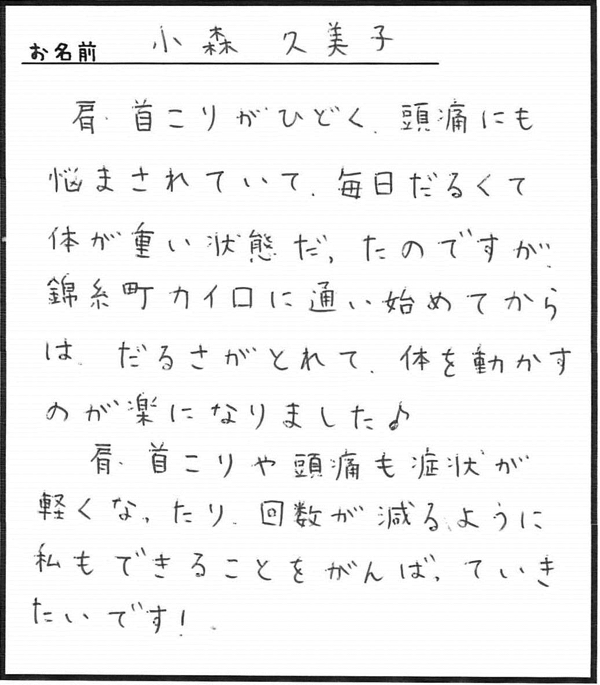 お名前 小森 久美子
肩・首こりがひどく、頭痛にも
悩まされていて、毎日だるくて
体が重い状態だったのですが、
錦糸町カイロに通い始めてから
は、だるさがとれて、体を動かす
のが楽になりました♪
肩・首こりや頭痛も症状が
軽くなったり、回数が減るように
私もできることをがんばっていき
たいです!